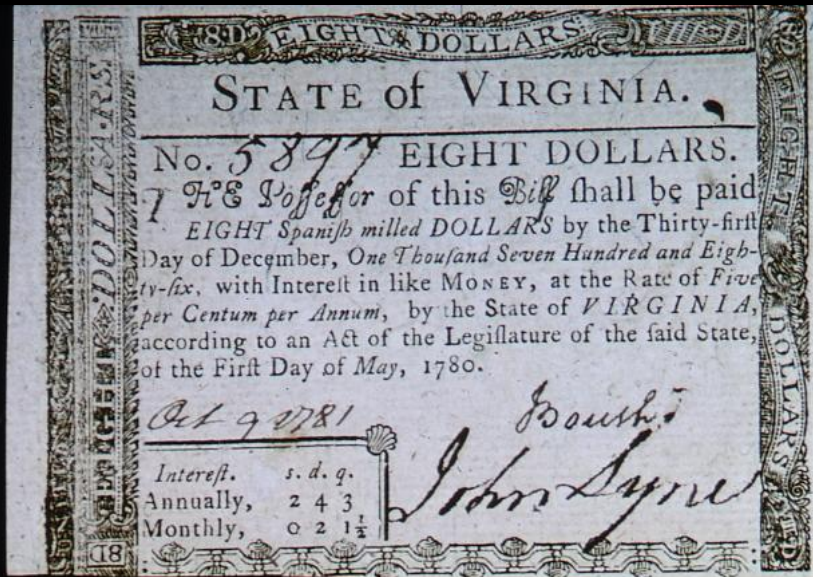 8D EIGHT DOLLARS
STATE of VIRGINIA.
No. 5897 EIGHT DOLLARS.
THE Poſſeſſor of this Bill ſhall be paid
EIGHT Spaniſh milled DOLLARS by the Thirty-firſt
Day of December, One Thouſand Seven Hundred and Eigh-
ty-ſix, with Intereſt in like MONEY, at the Rate of Five
per Centum per Annum, by the State of VIRGINIA,
according to an Act of the Legiſlature of the ſaid State,
of the Firſt Day of May, 1780.
Oct 9 1781
Boush
John Lyne
Intereſt. s. d. q.
Annually, 2 4 3
Monthly, 0 2 1½
8D
DOLLARS
EIGHT DOLLARS